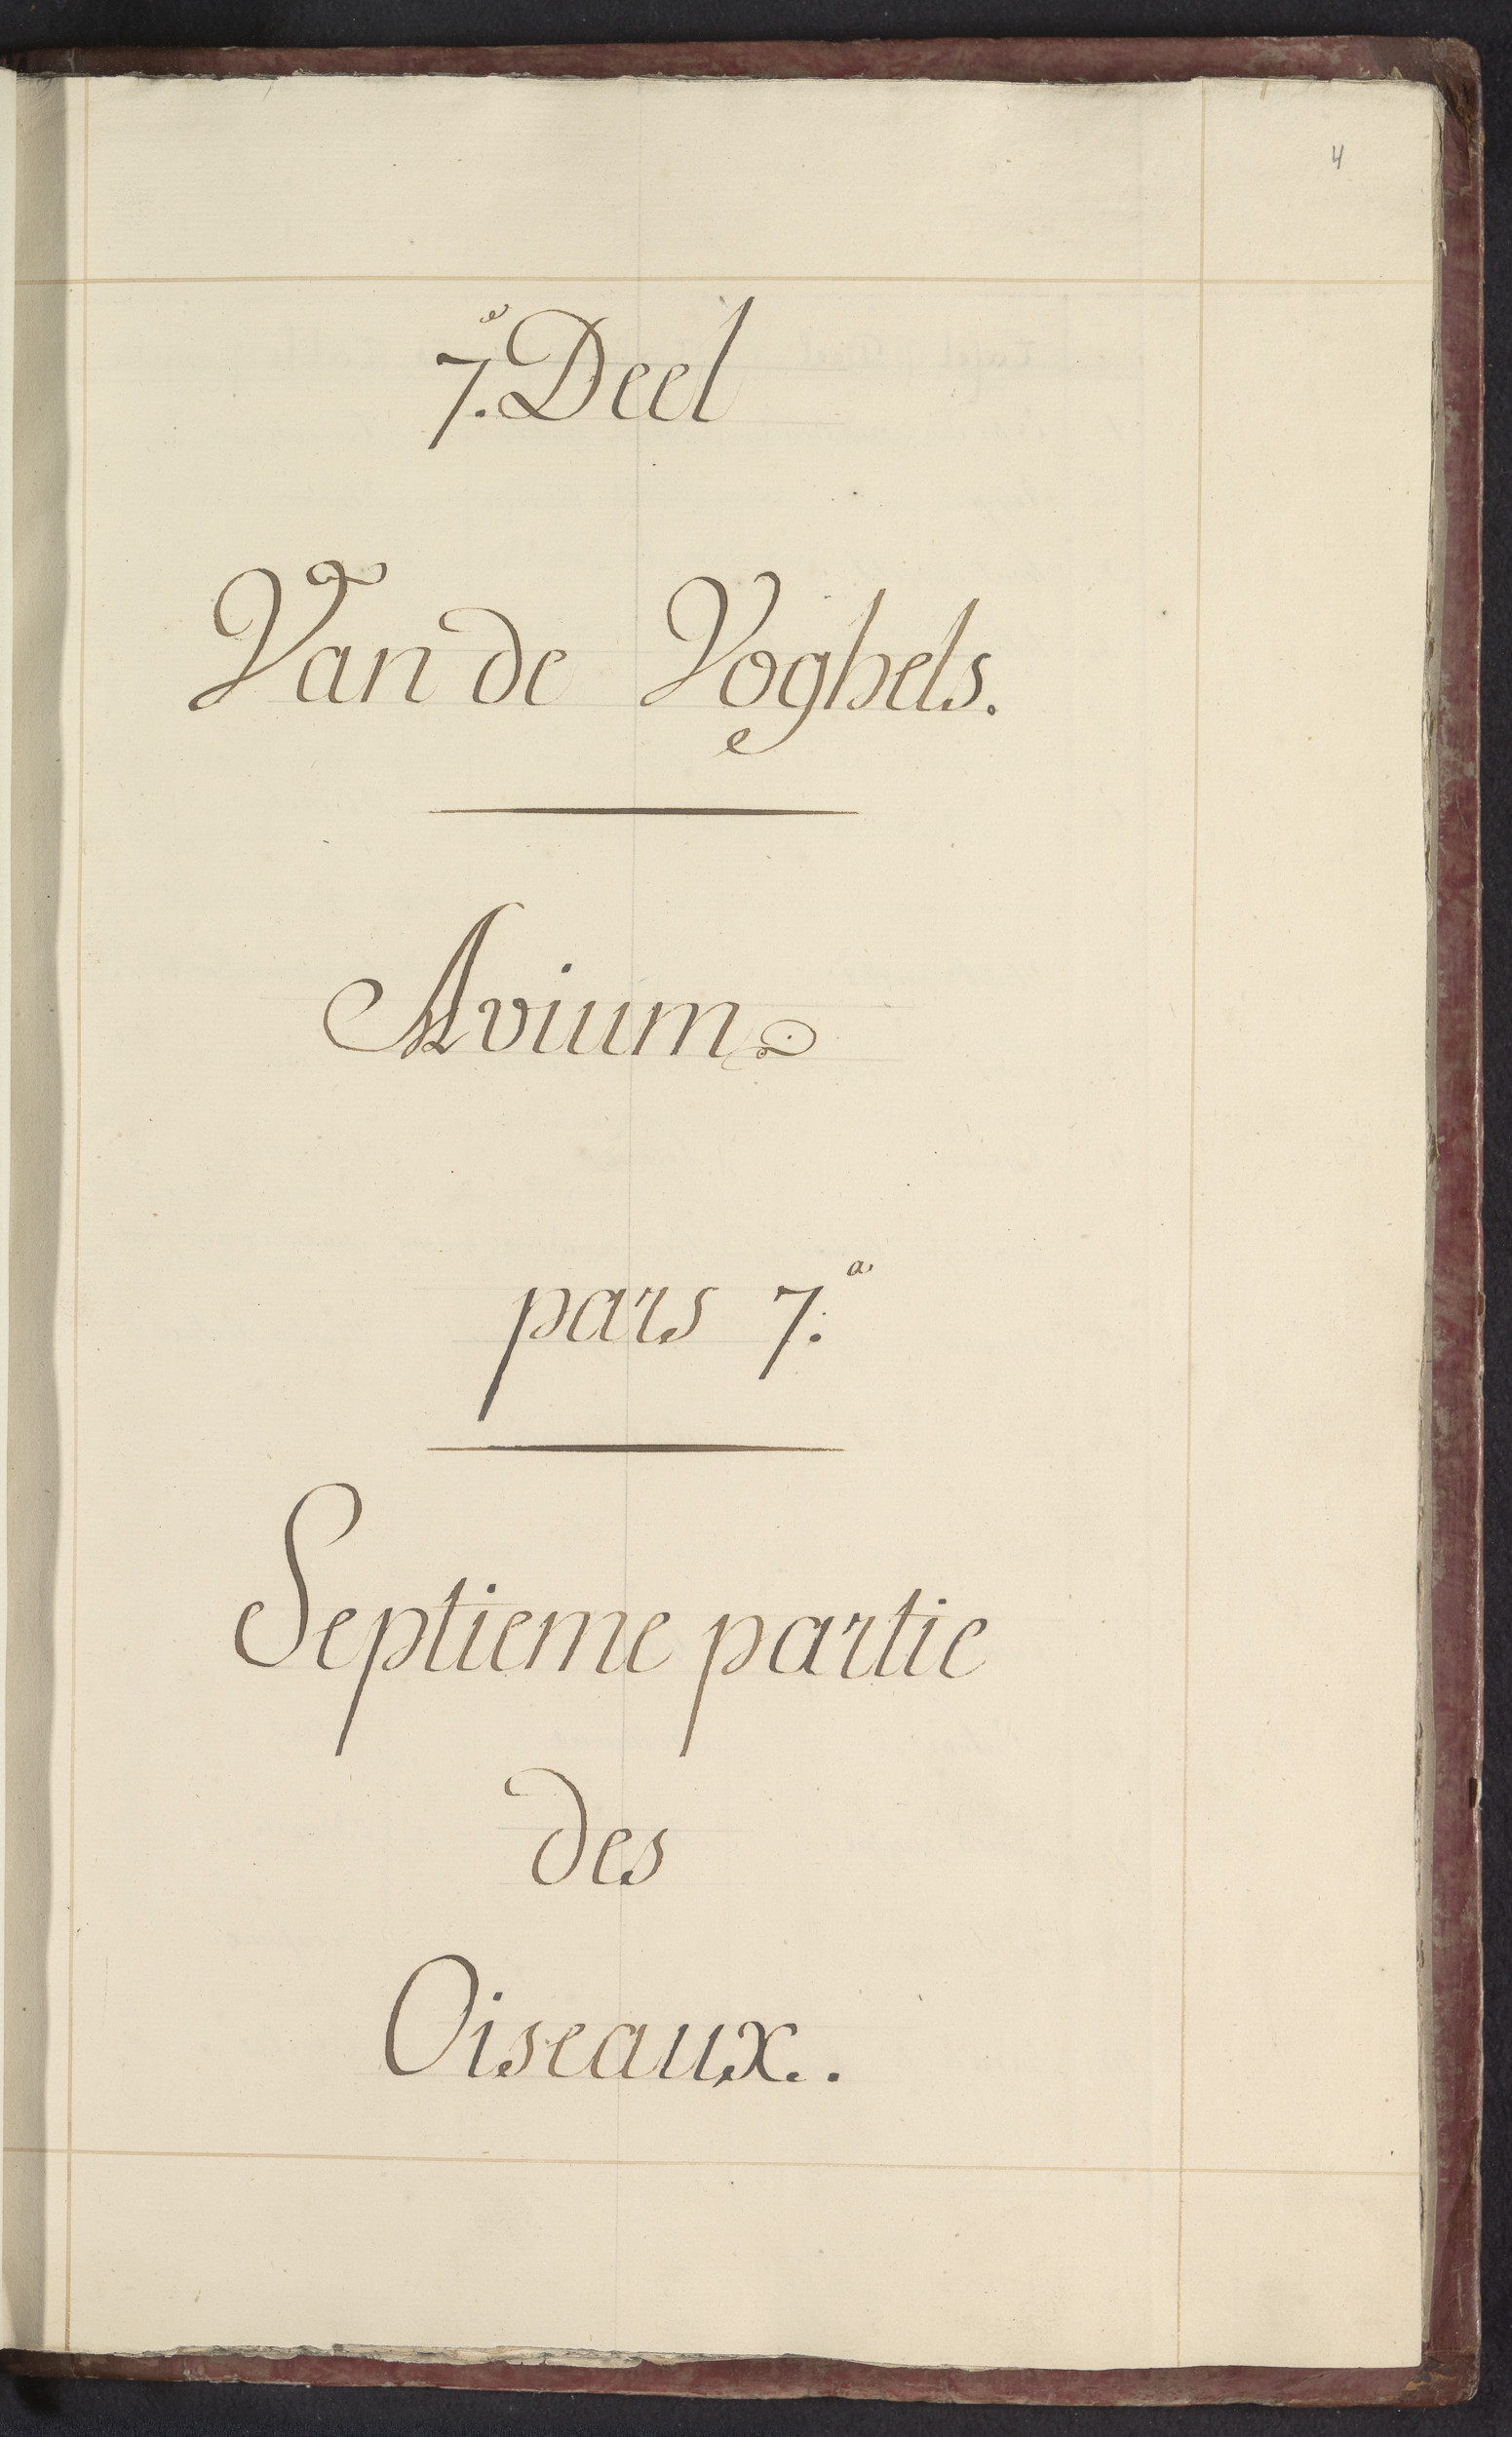 4
7.e Deel
Van de Voghels.
Avium.
pars 7.a
Septieme partie
des
Oiseaux..